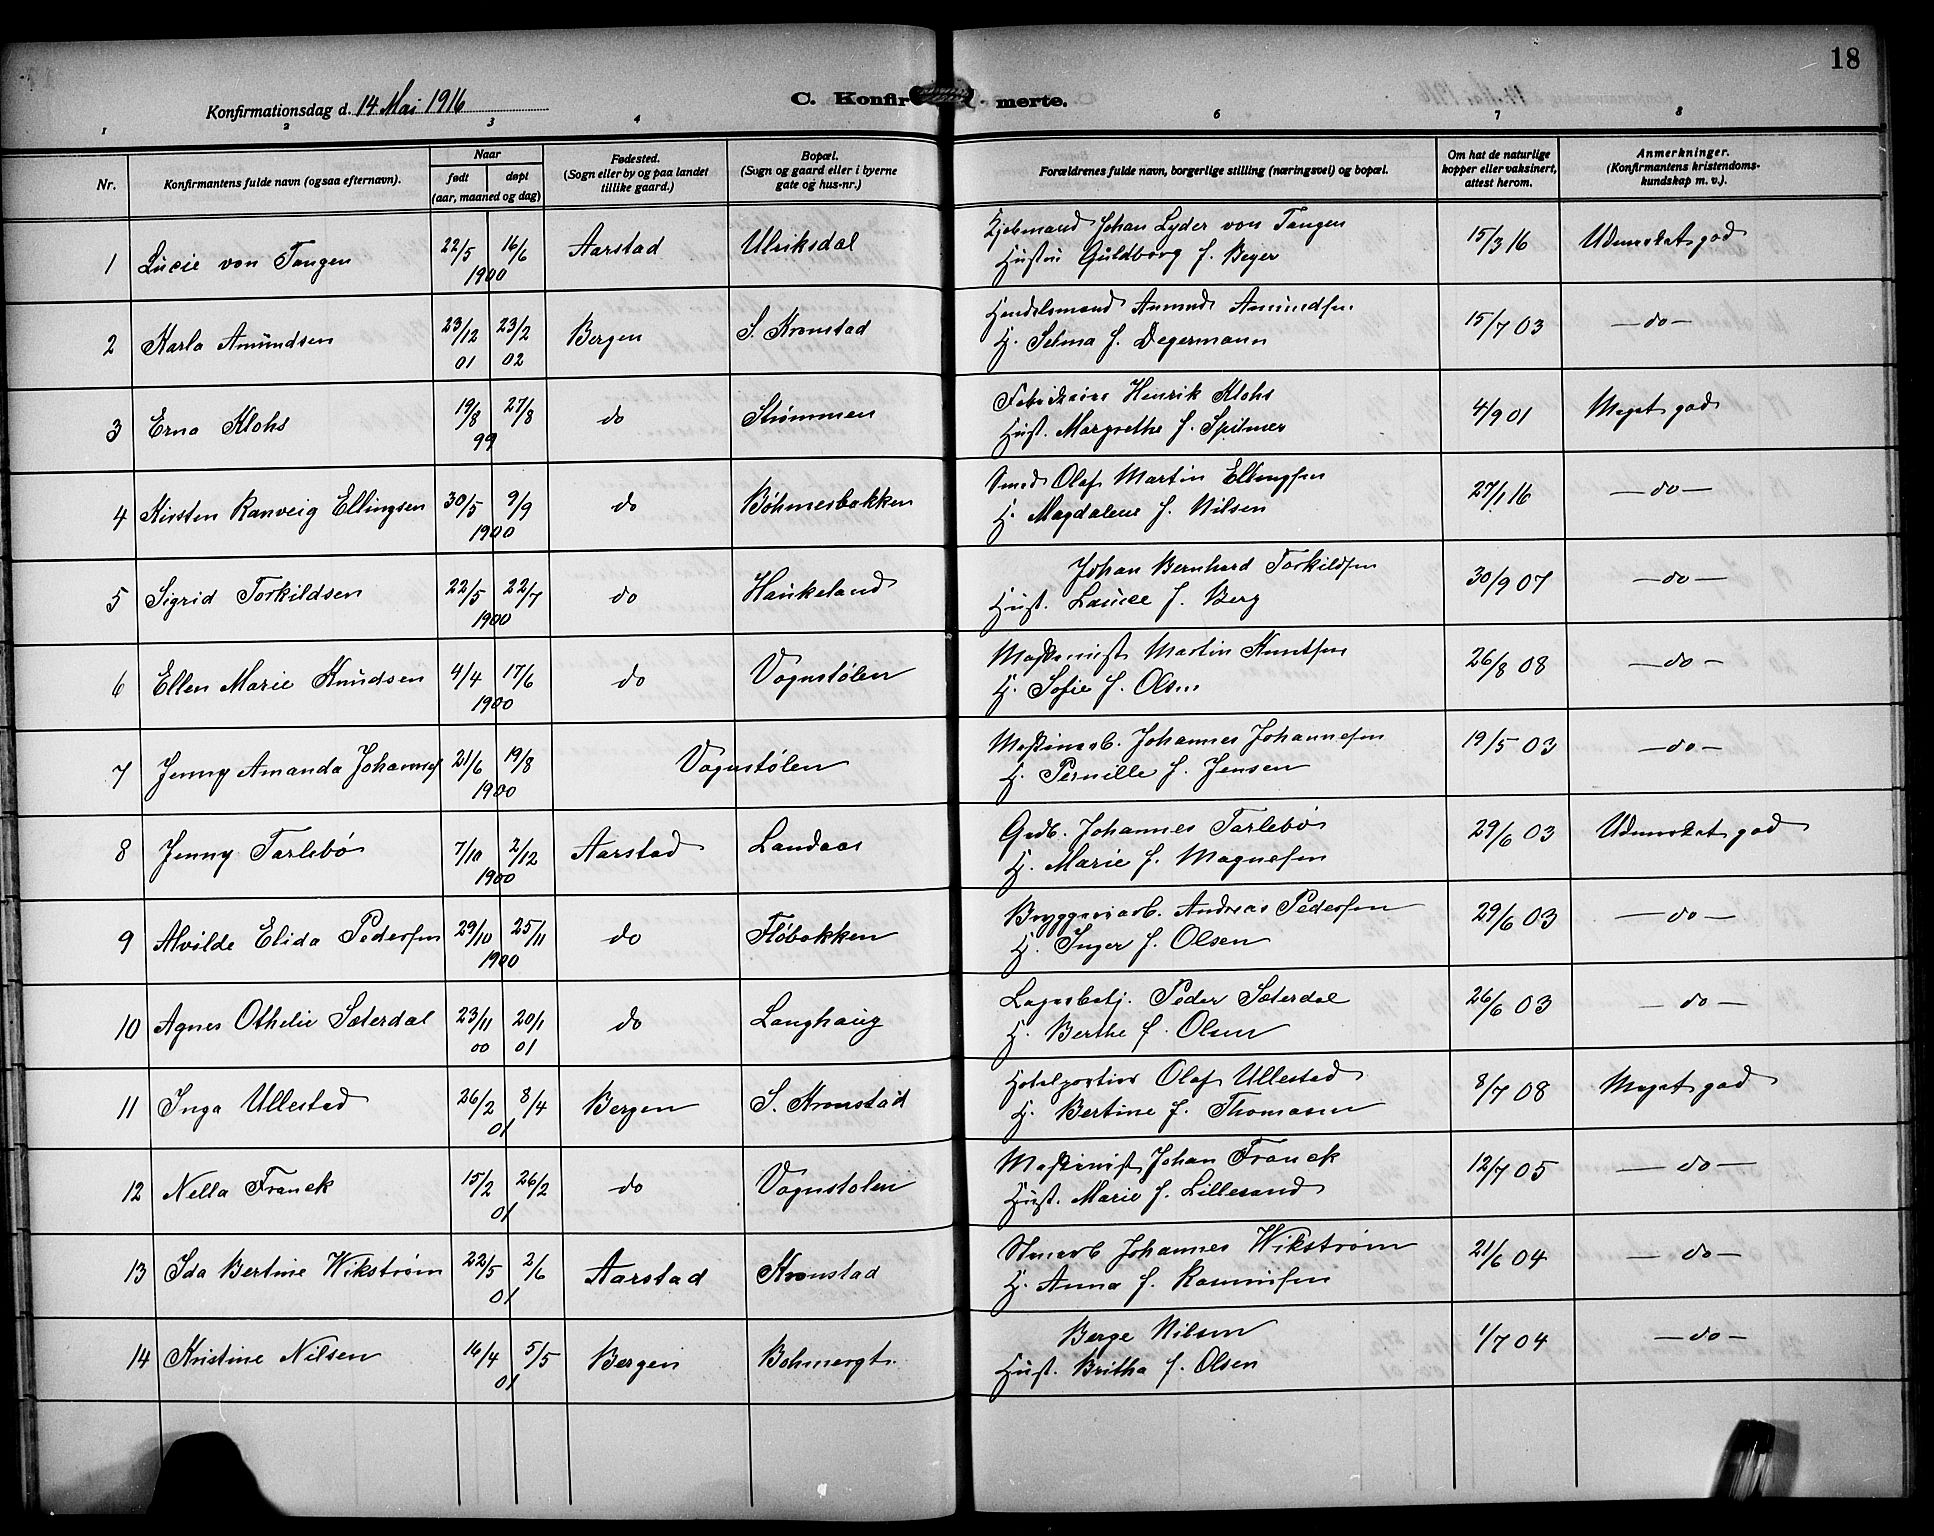 18
Konfirmationsdag d. 14 Mai 1916
C. Konfirmerte.
1 2 3 4 6 7 8
Nr. Konfirmantens fulde navn (ogsaa efternavn). Naar født døpt (aar, maaned og dag) Fødested. (Sogn eller by og paa landet tillike gaard.) Bopæl. (Sogn og gaard eller i byerne gate og hus-nr.) Forældrenes fulde navn, borgerlige stilling (næringsvei) og bopæl. Om hat de naturlige kopper eller vaksinert, attest herom. Anmerkninger. (Konfirmantens kristendomskundskap m. v.).
1 Lucie von Tangen 22/5 16/6 1900 Aarstad Ulriksdal Kjøbmand Johan Lyder von Tangen
Hustru Guldborg f. Beyer 15/3 16 Udmerket god
2 Karla Amundsen 23/12 01 23/2 02 Bergen S. Kronstad Handelsmand Amund Amundsen
H. Selma f. Degermann 15/7 03 — do —
3 Erna Klohs 19/8 27/8 99 do Strømmen Henrik Klohs
Hust. Margrethe f. Spilmer 4/9 01 Meget god
4 Kirsten Ranveig Ellingsen 30/5 9/9 1900 do Bøhmesbakken Smed Olaf Martin Ellingsen
H. Magdalene f. Nilsen 27/1 16 — do —
5 Sigrid Torkildsen 22/5 22/7 1900 do Haukeland Johan Bernhard Torkildsen
Hust. f. Berg 30/9 07 — do —
6 Ellen Marie Knudsen 4/4 17/6 1900 do Vognstølen Maskinist Martin Knutsen
H. Sofie f. Olsen 26/8 08 — do —
7 Jenny Amanda Johannes 21/6 19/8 1900 Vognstølen Maskinarb. Johannes Johannesen
H. Pernille f. Jensen 19/5 03 — do —
8 Jenny Tarlebø 7/10 2/12 1900 Aarstad Landaas Grdb. Johannes Tarlebø
H. Marie f. Magnesen 29/6 03 Udmerket god
9 Alvilde Elida Pedersen 29/10 25/11 1900 do Fløbakken Bryggeriarb. Andreas Pedersen
H. Inger f. Olsen 29/6 03 — do —
10 Agnes Othelie Sæterdal 23/11 00 20/1 01 do Langhaug Lagerbetj. Peder Sæterdal
H. Berthe f. Olsen 26/6 03 — do —
11 Inga Ullestad 26/2 8/4 01 Bergen S. Kronstad Hotelportier Olaf Ullestad
H. Bertine f. Thomasen 8/7 08 Meget god
12 Nella Franck 15/2 26/2 01 do Vognstolen Maskinist Johan Franck
Hust. Marie f. Lillesand 12/7 05 — do —
13 Ida Bertine Wikstrøm 22/5 2/6 01 Aarstad Kronstad Stenarb Johannes Wikstrøm
H. Anna f. Rasmusen 21/6 04 — do —
14 Kristine Nilsen 16/4 5/5 01 Bergen Bohmergt. Berge Nilsen
Hust. Britha f. Olsen 1/7 04 — do —